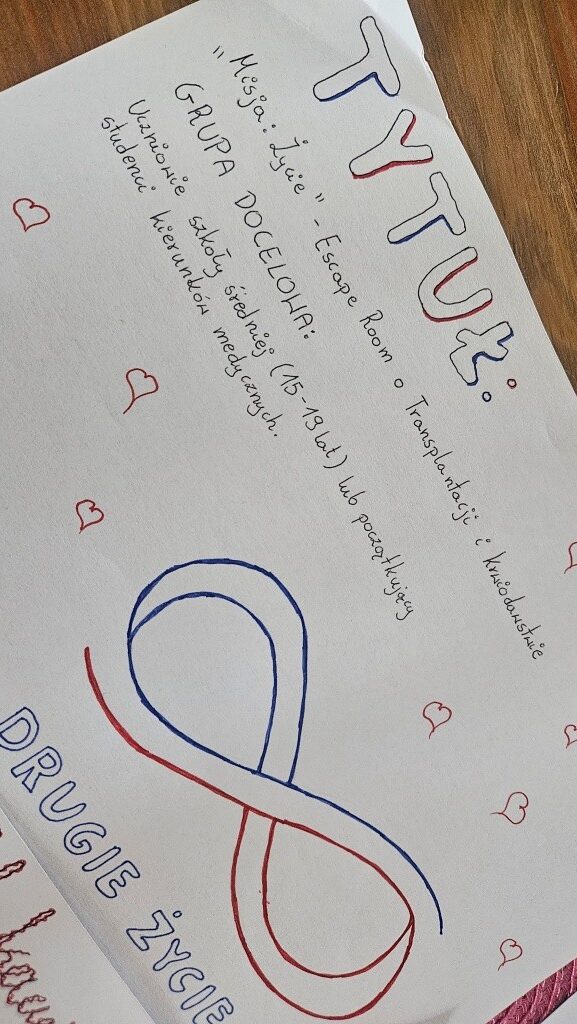 TYTUŁ:
"Misja: Życie" - Escape Room o Transplantacji i krwiodawstwie
GRUPA DOCELOWA:
Uczniowie szkoły średniej (15-19 lat) lub początkujący
studenci kierunków medycznych.
DRUGIE ŻYCIE